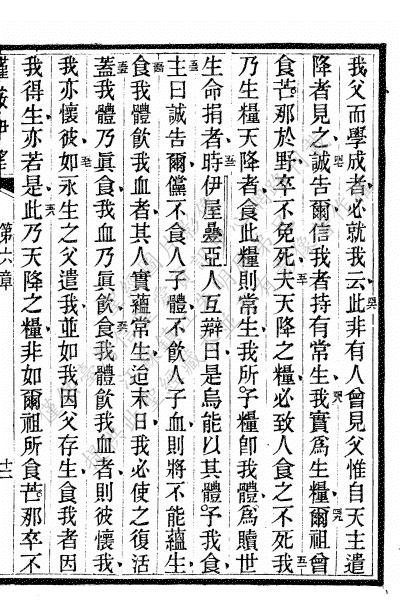 我父而學成者必就我云此非有人曾見父惟自天主遣
降者見之誠告爾信我者持有常生我實爲生糧爾祖曾
食芒那於野卒不免死夫天降之糧必致人食之不死我
乃生糧天降者食此糧則常生我所予糧卽我體爲贖世
生命捐者時伊屋疊亞人互辯曰是烏能以其體予我食
主曰誠告爾儻不食人子體不飲人子血則將不能蘊生
食我體飲我血者其人實蘊常生迨末日我必使之復活
蓋我體乃眞食我血乃眞飲食我體飲我血者則彼懷我
我亦懷彼如永生之父遣我並如我因父存生食我者因
我得生亦若是此乃天降之糧非如爾祖所食芒那卒不
第六章